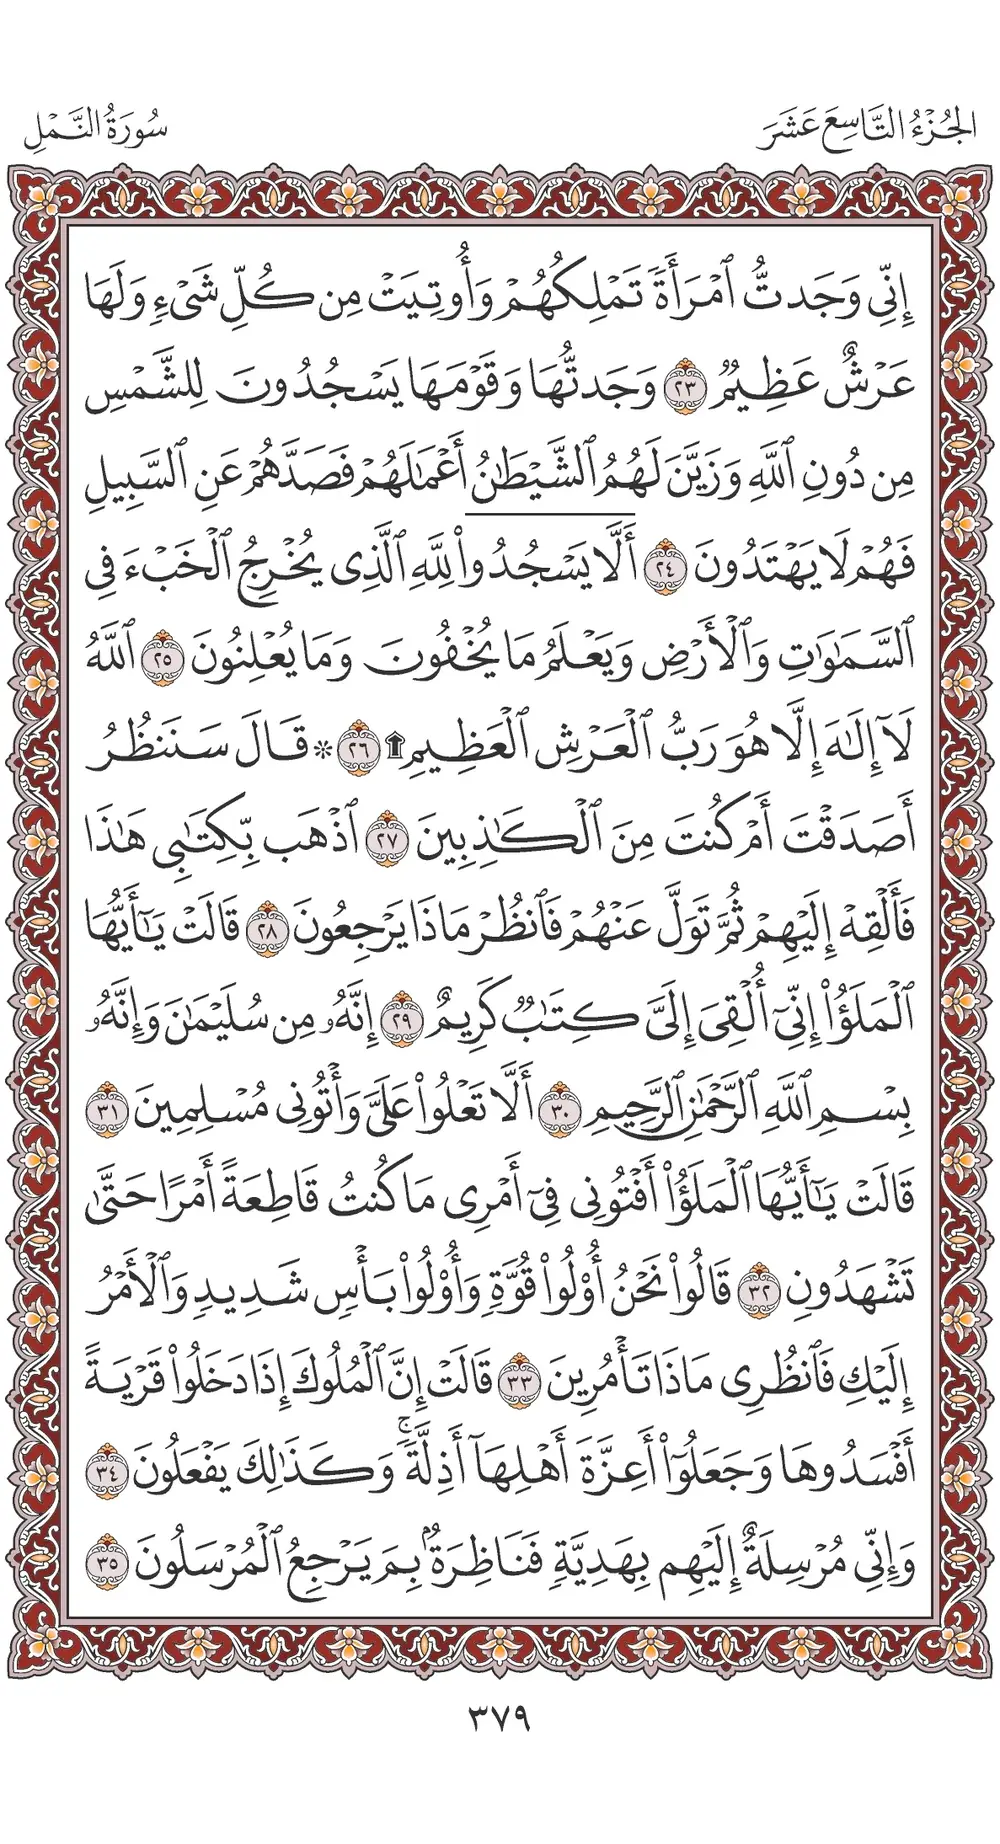 الجُزْءُ التَّاسِعَ عَشَرَ
سُورَةُ النَّمْلِ
إِنِّي وَجَدتُّ ٱمْرَأَةً تَمْلِكُهُمْ وَأُوتِيَتْ مِن كُلِّ شَىْءٍ وَلَهَا
عَرْشٌ عَظِيمٌ ٢٣ وَجَدتُّهَا وَقَوْمَهَا يَسْجُدُونَ لِلشَّمْسِ
مِن دُونِ ٱللَّهِ وَزَيَّنَ لَهُمُ ٱلشَّيْطَٰنُ أَعْمَٰلَهُمْ فَصَدَّهُمْ عَنِ ٱلسَّبِيلِ
فَهُمْ لَا يَهْتَدُونَ ٢٤ أَلَّا يَسْجُدُوا۟ لِلَّهِ ٱلَّذِى يُخْرِجُ ٱلْخَبْءَ فِى
ٱلسَّمَٰوَٰتِ وَٱلْأَرْضِ وَيَعْلَمُ مَا يُخْفُونَ وَمَا يُعْلِنُونَ ٢٥ ٱللَّهُ
لَآ إِلَٰهَ إِلَّا هُوَ رَبُّ ٱلْعَرْشِ ٱلْعَظِيمِ ۩ ٢٦ * قَالَ سَنَنظُرُ
أَصَدَقْتَ أَمْ كُنتَ مِنَ ٱلْكَٰذِبِينَ ٢٧ ٱذْهَب بِّكِتَٰبِى هَٰذَا
فَأَلْقِهْ إِلَيْهِمْ ثُمَّ تَوَلَّ عَنْهُمْ فَٱنظُرْ مَاذَا يَرْجِعُونَ ٢٨ قَالَتْ يَٰٓأَيُّهَا
ٱلْمَلَؤُا۟ إِنِّىٓ أُلْقِىَ إِلَىَّ كِتَٰبٌ كَرِيمٌ ٢٩ إِنَّهُۥ مِن سُلَيْمَٰنَ وَإِنَّهُۥ
بِسْمِ ٱللَّهِ ٱلرَّحْمَٰنِ ٱلرَّحِيمِ ٣٠ أَلَّا تَعْلُوا۟ عَلَىَّ وَأْتُونِى مُسْلِمِينَ ٣١
قَالَتْ يَٰٓأَيُّهَا ٱلْمَلَؤُا۟ أَفْتُونِى فِىٓ أَمْرِى مَا كُنتُ قَاطِعَةً أَمْرًا حَتَّىٰ
تَشْهَدُونِ ٣٢ قَالُوا۟ نَحْنُ أُو۟لُوا۟ قُوَّةٍ وَأُو۟لُوا۟ بَأْسٍ شَدِيدٍ وَٱلْأَمْرُ
إِلَيْكِ فَٱنظُرِى مَاذَا تَأْمُرِينَ ٣٣ قَالَتْ إِنَّ ٱلْمُلُوكَ إِذَا دَخَلُوا۟ قَرْيَةً
أَفْسَدُوهَا وَجَعَلُوٓا۟ أَعِزَّةَ أَهْلِهَآ أَذِلَّةً ۚ وَكَذَٰلِكَ يَفْعَلُونَ ٣٤
وَإِنِّى مُرْسِلَةٌ إِلَيْهِم بِهَدِيَّةٍ فَنَاظِرَةٌۢ بِمَ يَرْجِعُ ٱلْمُرْسَلُونَ ٣٥
٣٧٩